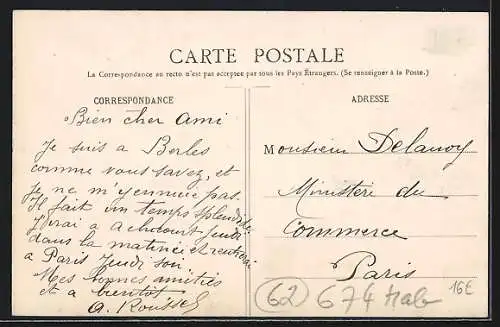 CARTE POSTALE
La Correspondance au recto n'est pas acceptée par tous les Pays Étrangers. (Se renseigner à la Poste.)
CORRESPONDANCE
Bien cher Ami
Je suis a Berles
comme vous savez, et
je ne m'y ennuie pas.
Il fait un temps splendide
J'irai a Achicourt Jeudi
dans la matinée et rentrerai
a Paris Jeudi soir
Mes bonnes amitiés
et a bientôt
A. Roussel
ADRESSE
Monsieur Delanoy
Ministère du
Commerce
Paris
62 674
16E